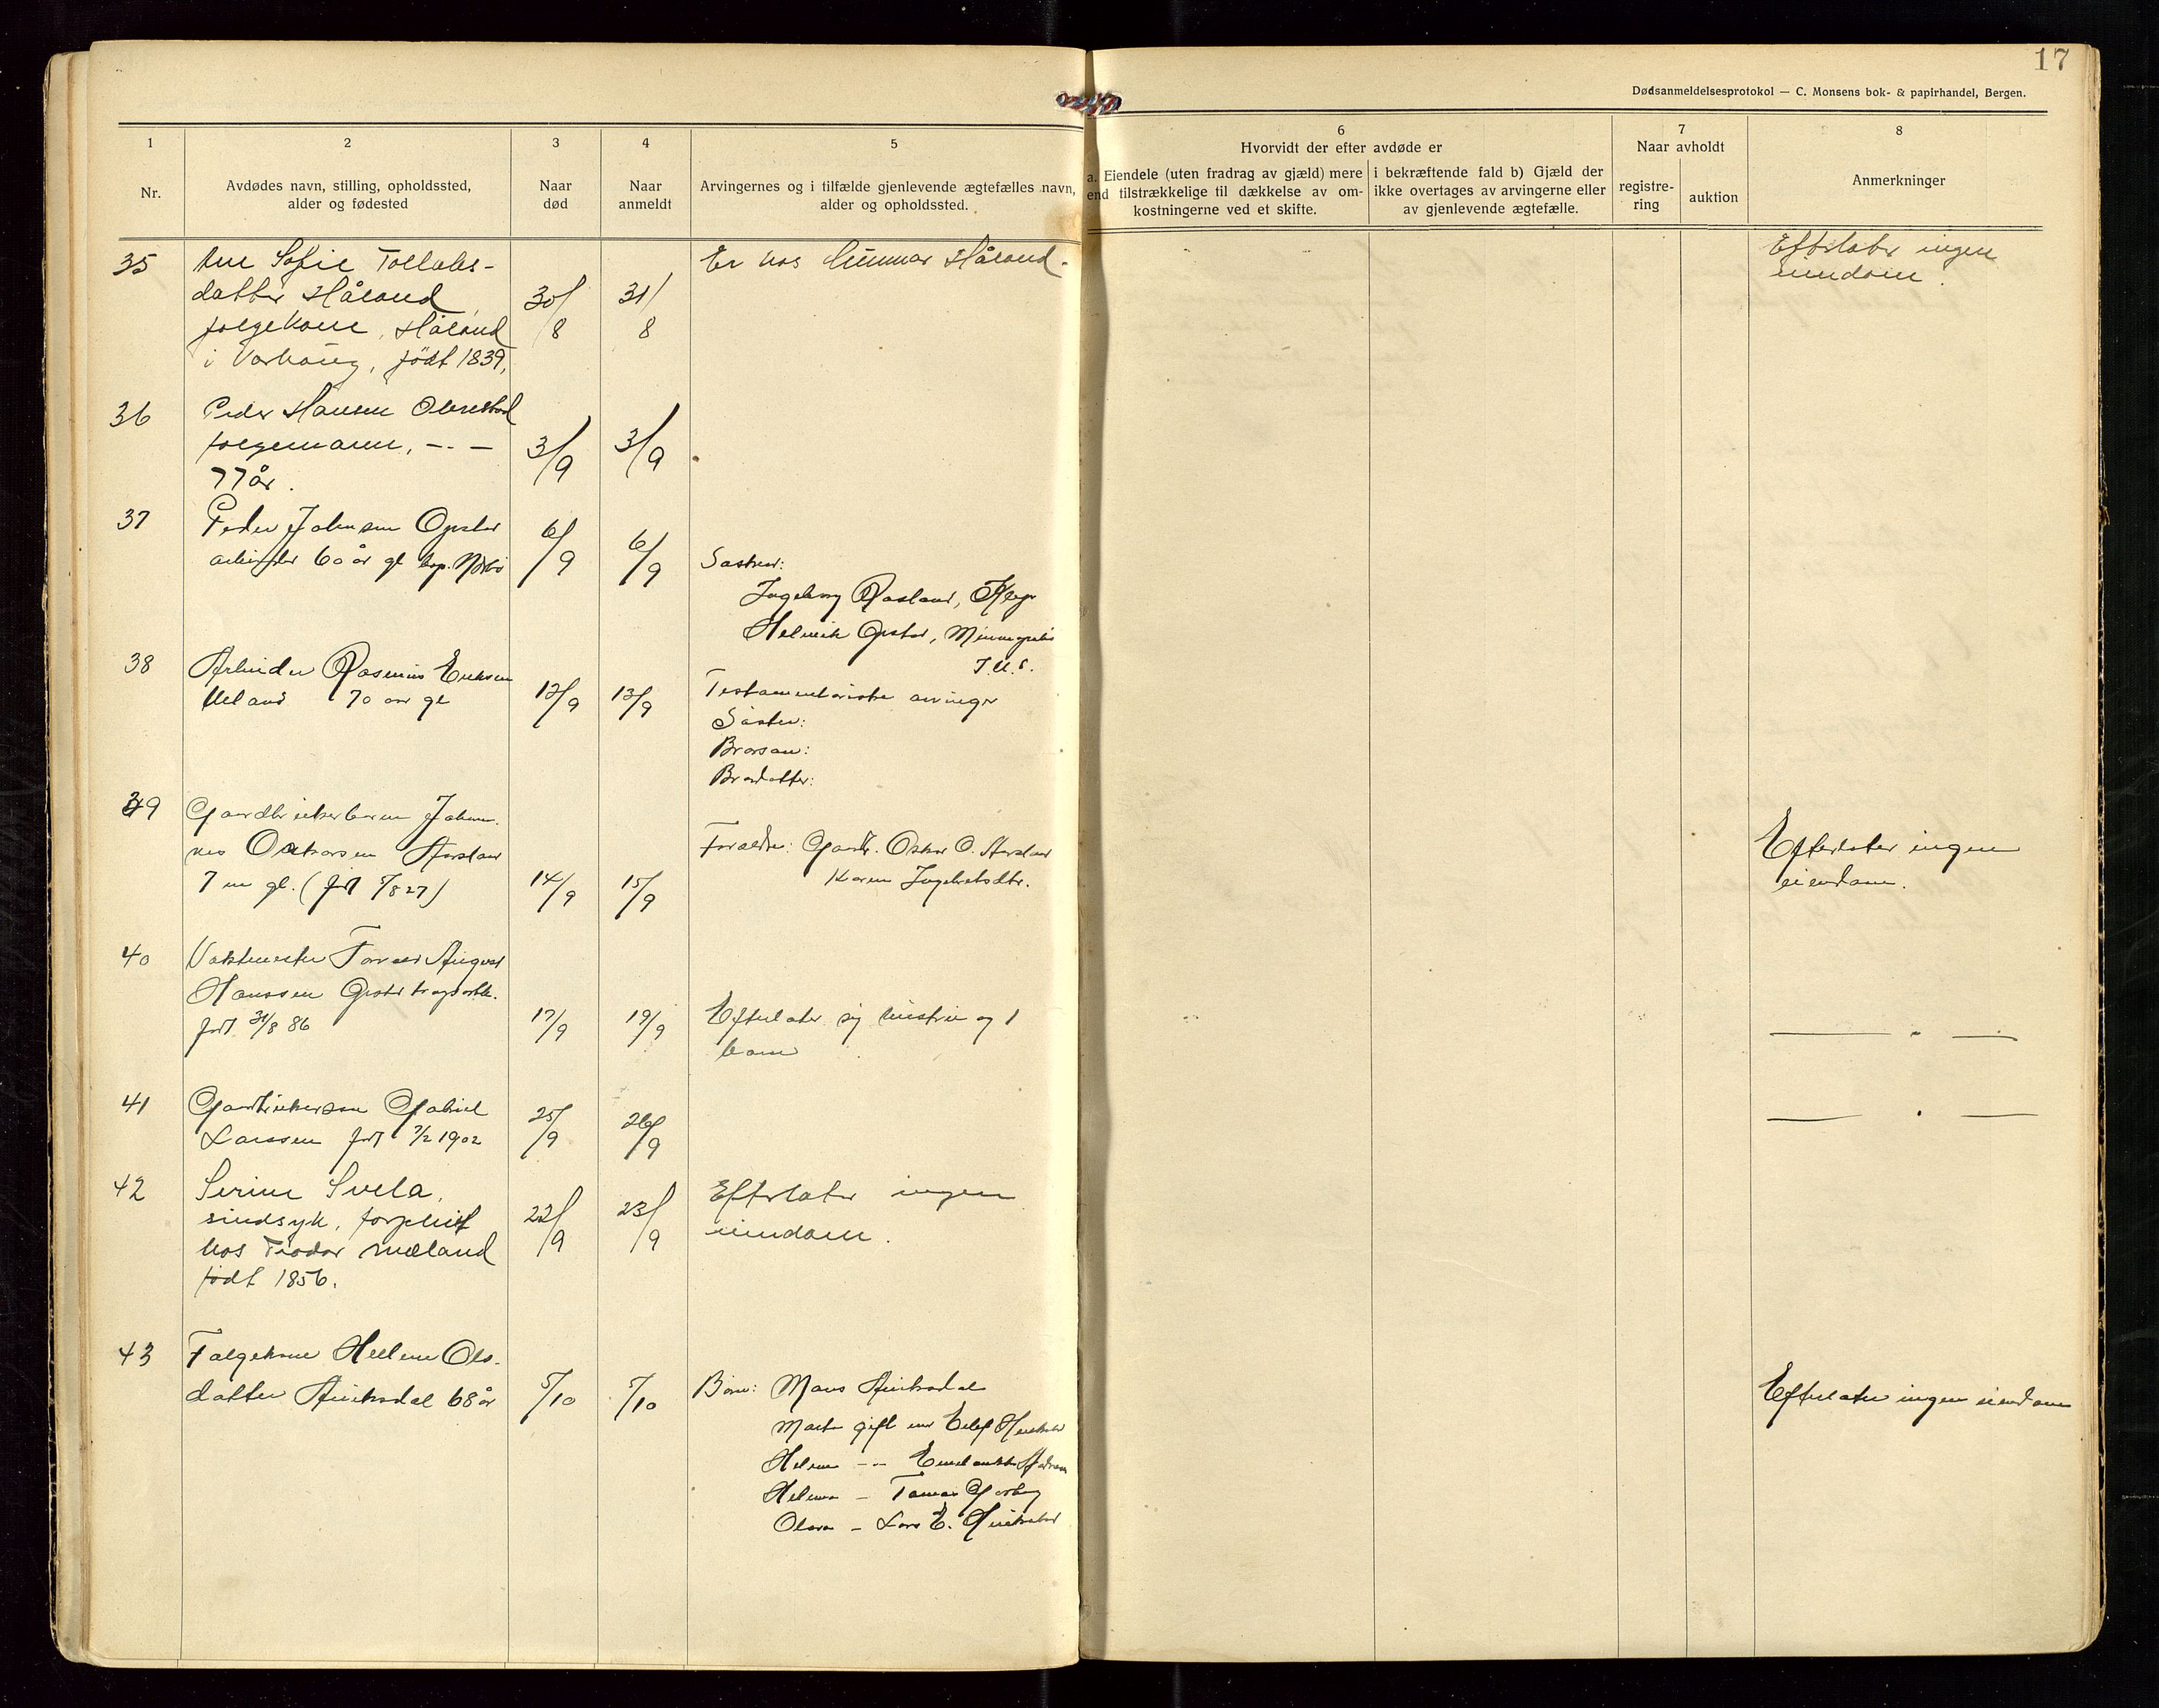 17
Dødsanmeldelsesprotokol — C. Monsens bok- & papirhandel, Bergen.
1
Nr.
2
Avdødes navn, stilling, opholdssted,
alder og fødested
3
Naar
død
4
Naar
anmeldt
5
Arvingernes og i tilfælde gjenlevende ægtefælles navn,
alder og opholdssted.
6
Hvorvidt der efter avdøde er
a. Eiendele (uten fradrag av gjæld) mere
end tilstrækkelige til dækkelse av om-
kostningerne ved et skifte.
i bekræftende fald b) Gjæld der
ikke overtages av arvingerne eller
av gjenlevende ægtefælle.
7
Naar avholdt
registre-
ring
auktion
8
Anmerkninger
35
Ane Sofie Tollaks-
datter Håland
folgekone, Håland
i Varhaug, födt 1839,
30/8
31/8
Er hos Gunnar Håland.
Efterlater ingen
eiendom.
36
Peder Hansen Obrestad
folgemann, -.-
77 år.
3/9
3/9
37
Peder Johnsen Opstad
arbeider 60 år gl
6/9
6/9
Søsken:
Ingeborg Rasland, Klep
Helmik Opstad,
38
Arbeider Rasmus Eriksen
Ueland 70 aar gl
12/9
13/9
Testamentariske arvinger
Søster:
Brorsøn:
Brordatter:
39
Gaardbrukerbarn Johan-
nes Oskarsen
7 m gl. (født 5/8 27)
14/9
15/9
Foraeldre: Gaardb. Oskar O.
Karen Ingebretsdtr.
Efterlater ingen
eiendom.
40
Vaktmester August
Hanssen Opstad
født 31/8 86
17/9
19/9
Efterlater sig hustru og 1
barn
— " —
41
Gaardbrukersøn Gabriel
Larssen født 7/2 1902
25/9
26/9
— " —
42
Serine Svela,
sindsyk, forpleiet
hos Tiodor Mæland
födt 1856.
22/9
23/9
Efterlater ingen
eiendom.
43
Folgekone Helene Ols-
datter 68 år
5/10
5/10
Børn: Mans
Marta gift m
Helene -"-
Helena -
Olava - Lars E.
Efterlater ingen eiendom